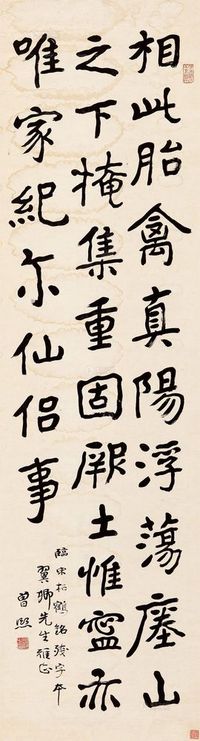 相此胎禽真陽浮蕩塵山
之下掩集重固厥土惟寧亦
唯家紀尔仙侣事
臨宋拓鶴銘殘字本
翼卿先生雅正
曾熙